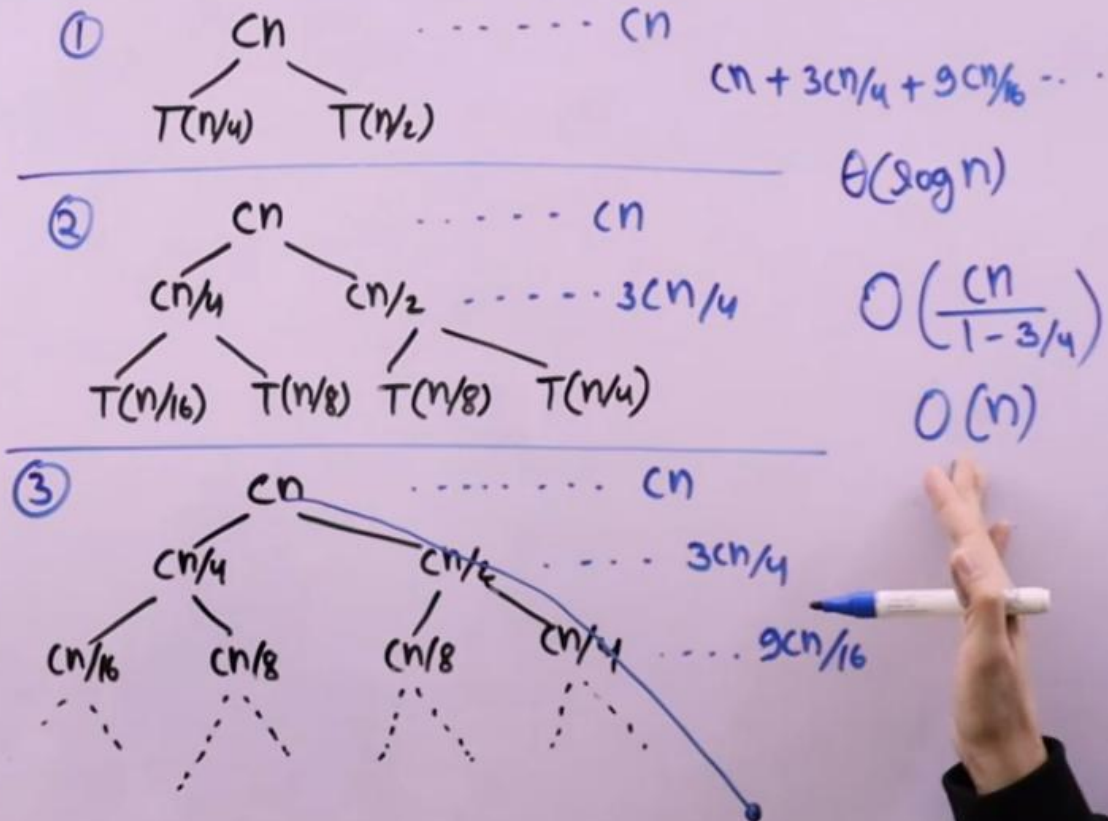 ① cn ...... cn
T(n/4) T(n/2)
cn + 3cn/4 + 9cn/16 ....
θ(log n)
② cn ...... cn
cn/4 cn/2 ...... 3cn/4
T(n/16) T(n/8) T(n/8) T(n/4)
O(cn/(1-3/4))
O(n)
③ cn ........ cn
cn/4 cn/2 .... 3cn/4
cn/16 cn/8 cn/8 cn/4 .... 9cn/16